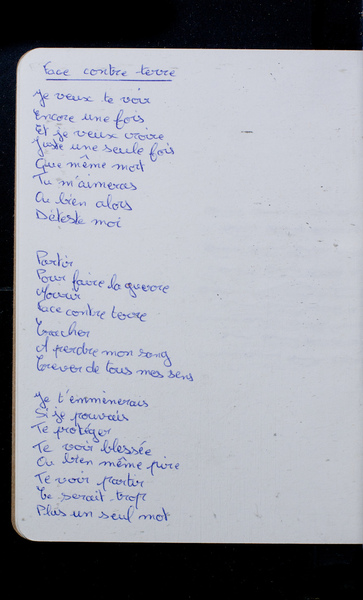 Face contre terre
Je veux te voir
Encore une fois
Et je veux croire
Juste une seule fois
Que même mort
Tu m'aimeras
Ou bien alors
Déteste moi
Partir
Pour faire la guerre
Mourir
Face contre terre
Cracher
A perdre mon sang
Crever de tous mes sens
Je t'emmènerais
Si je pouvais
Te protéger
Te voir blessée
Ou bien même pire
Te voir partir
Ce serait trop
Plus un seul mot